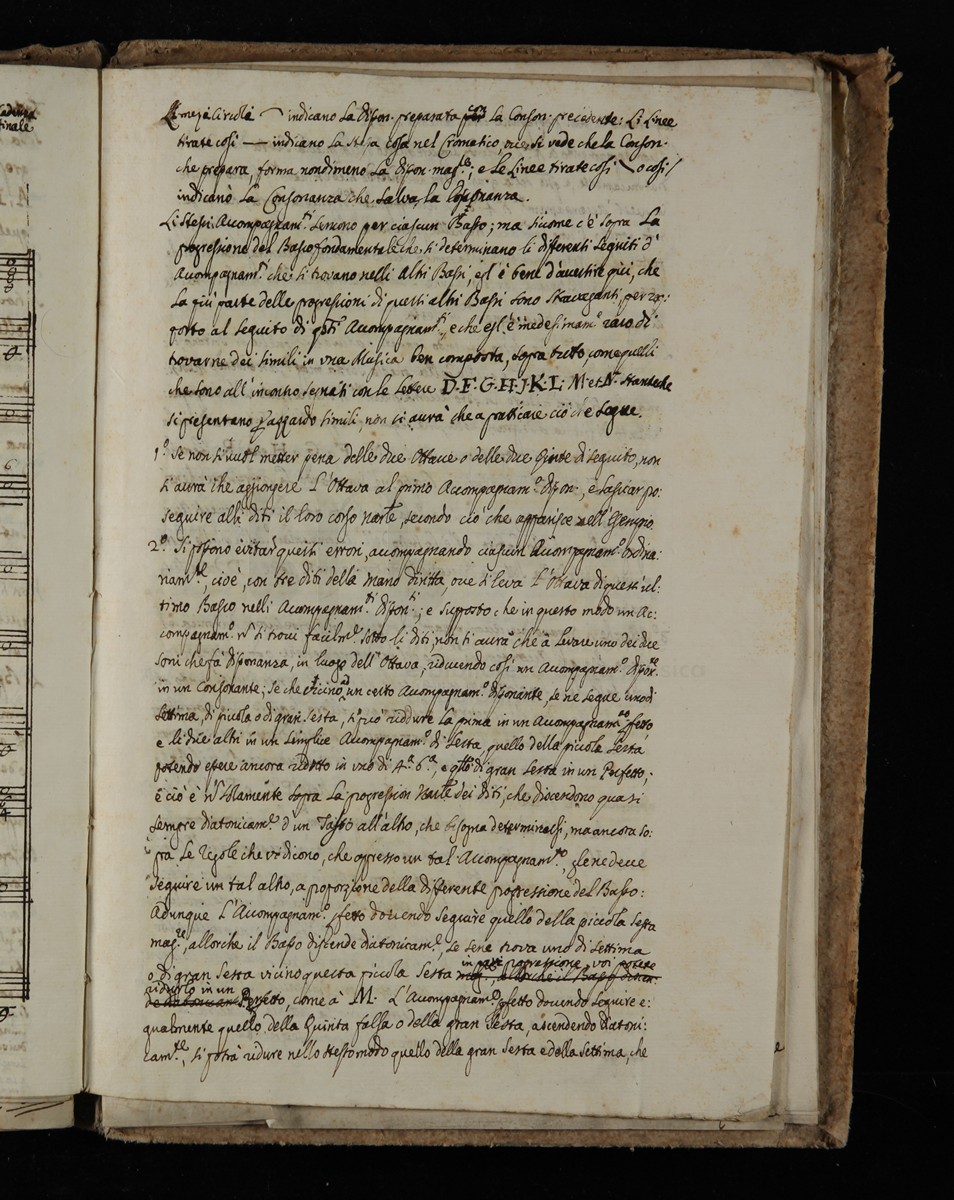 cadenza
finale
Li mezi Circoli ⁀ indicano La dison. preparata con La Conson. precedente: Li Linee
tirate così — indicano La stessa cosa nel Cromatico, ove si vede che la Conson.
che prepara, forma nondimeno La dison. mag.re; e Le Linee tirate così \ o così /
indicano La Consonanza che Salva, la Disonanza.
Li stessi Acompagnam.ti servono per ciascun Basso; ma sicome c'è sopra La
progressione del Basso fondamentale che si determinano li differenti Seguiti d'
Acompagnam.ti che si trovano nelli altri Bassi, egl'è bene d'avertire quì, che
La più parte delle progressioni di questi altri Bassi sono stravaganti per rap:
porto al seguito di q.sti Acompagnam.ti, e che egl'è medesimam.e raro di
trovarne dei simili in una Musica ben composta, sopra tutto, come quelli
che sono all'incontro segnati con le Lettere D. F. G. H. J. K. L. M et N. stante che
si presentano p azzardo simili, non si avrà che a praticare ciò che segue.
1.o Se non si vuol metter pena delle due Ottave o delle due Quinte di seguito, non
si avrà che aggiongere L'Ottava al primo Acompagnam.o dison., e Lasciar po:
seguire altri diti il loro corso nar.le, secondo ciò che apparisce nell'Esempio
2.o Si possono evitar questi errori, accompagnando ciascun Acompagnam.o ordina:
riam.te, cioè, con tre diti della mano diritta, ove si leva L'Ottava di questi ul:
timo Basso nelli Acompagnam.ti dison.ti; e supposto che in questo modo un Ac:
compagnam.o n si trovi facilm.e sotto li diti, non si avrà che a Levare uno dei due
soni che fà disonanza, in luogo dell'Ottava, riducendo così un Acompagnam.o dison.te
in un Consonante; Se che vicino ad un certo Acompagnam.o disonante, se ne segue uno di
Settima, di picola o di gran Sesta, si può ridurre la prima in un Acompagnam.to pfetto
e li due altri in un Semplice Acompagnam.o di Sesta, quello della picola Sesta
potendo essere ancora ridotto in uno di 4.a 6.a, e q.llo di gran Sesta in un Perfetto;
e ciò è n solamente sopra La progression nar.le dei diti, che discendono quasi
sempre diatonicam.e d'un Tasto all'altro, che bisogna determinarsi, ma ancora so:
pra Le regole che vi dicono, che appresso un tal Acompagnam.to, glene deve
seguire un tal altro, a proporzione della differente progressione del Basso:
Adunque L'Acompagnam.o pfetto dovendo seguire quello della piccola sesta
mag.re, allorche il Basso discende diatonicam.e, se sene trova uno di settima
o di gran Sesta vicino questa picola Sesta in pari progressione, voi potete
ridurlo in un Perfetto, come à M. L'Acompagnam.o pfetto dovendo seguire e:
gualmente quello della Quinta falsa o della gran Sesta, ascendendo diatoni:
cam.te, si potrà ridure nello stesso modo quello della gran Sesta e della Settima, che